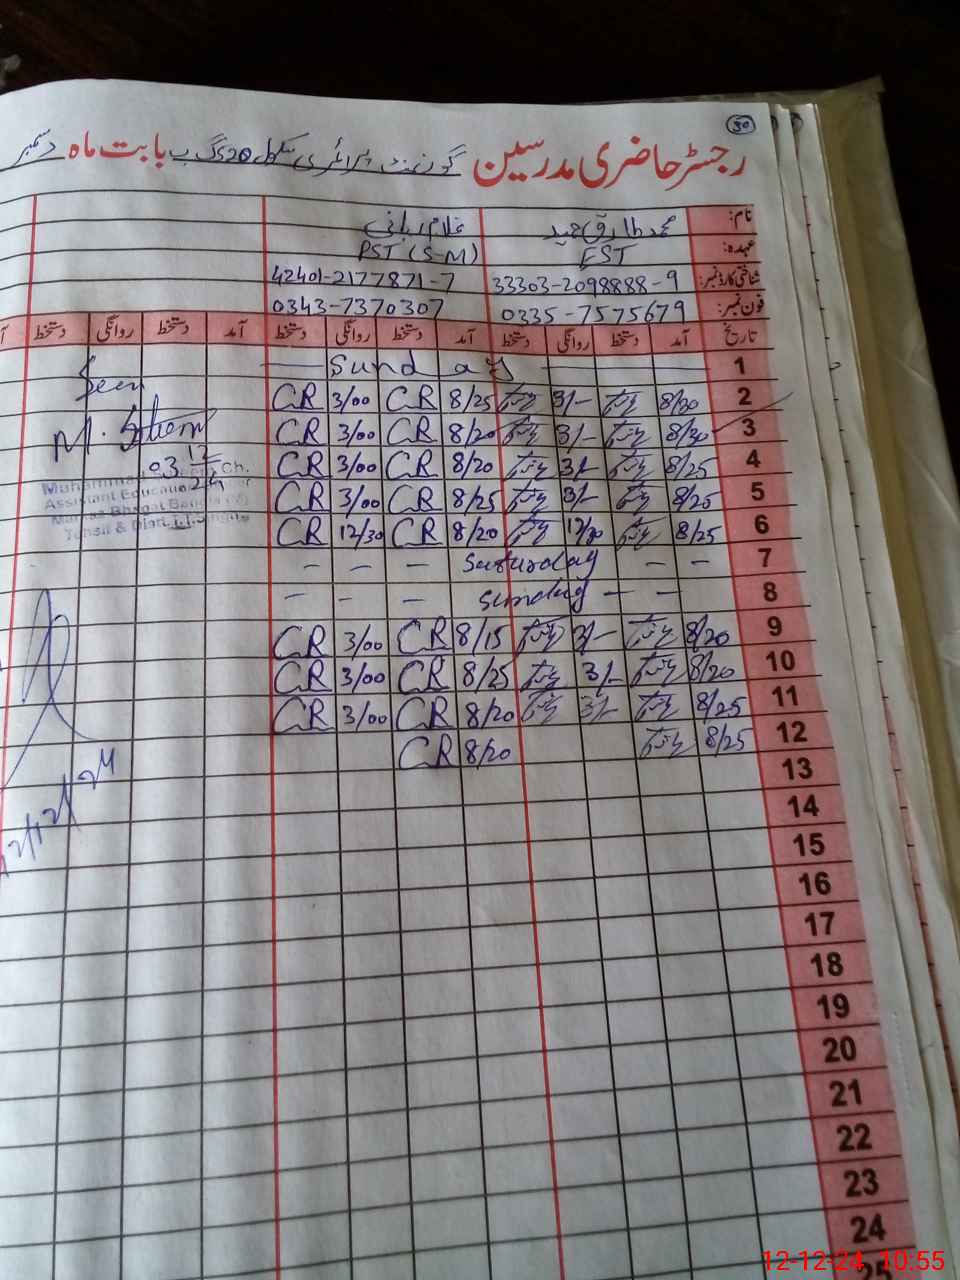 30
رجسٹر حاضری مدرسین گورنمنٹ پرائمری سکول 520 گ ب بابت ماہ دسمبر
نام: محمد طارق حمید غلام ربانی
عہدہ: EST PST (S-M)
شناختی کارڈ نمبر: 33303-2098888-9 42401-2177871-7
فون نمبر: 0335-7575679 0343-7370307
تاریخ آمد دستخط روانگی دستخط آمد دستخط روانگی دستخط آمد دستخط روانگی دستخط
1 Sunday
2 8/30 3/- 8/25 CR 3/00 CR
3 8/30 3/- 8/20 CR 3/00 CR
4 8/25 3/- 8/20 CR 3/00 CR
5 8/25 3/- 8/25 CR 3/00 CR
6 8/25 12/30 8/20 CR 12/30 CR
7 — — Saturday — — —
8 — — Sunday — — —
9 8/20 3/- 8/15 CR 3/00 CR
10 8/20 3/- 8/25 CR 3/00 CR
11 8/25 3/- 8/20 CR 3/00 CR
12 8/25 8/20 CR
13
14
15
16
17
18
19
20
21
22
23
24
25
Seen
03 12
24
Assistant Education
Tehsil & Distt.
12-12-24 10:55